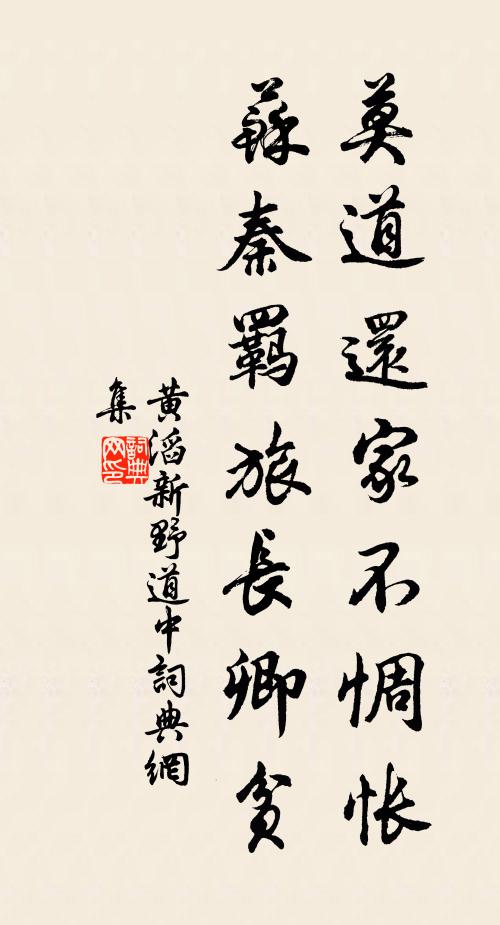 莫道還家不惆悵
蘇秦羈旅長卿貧
黄滔新野道中詞典網
集
詞典
网印